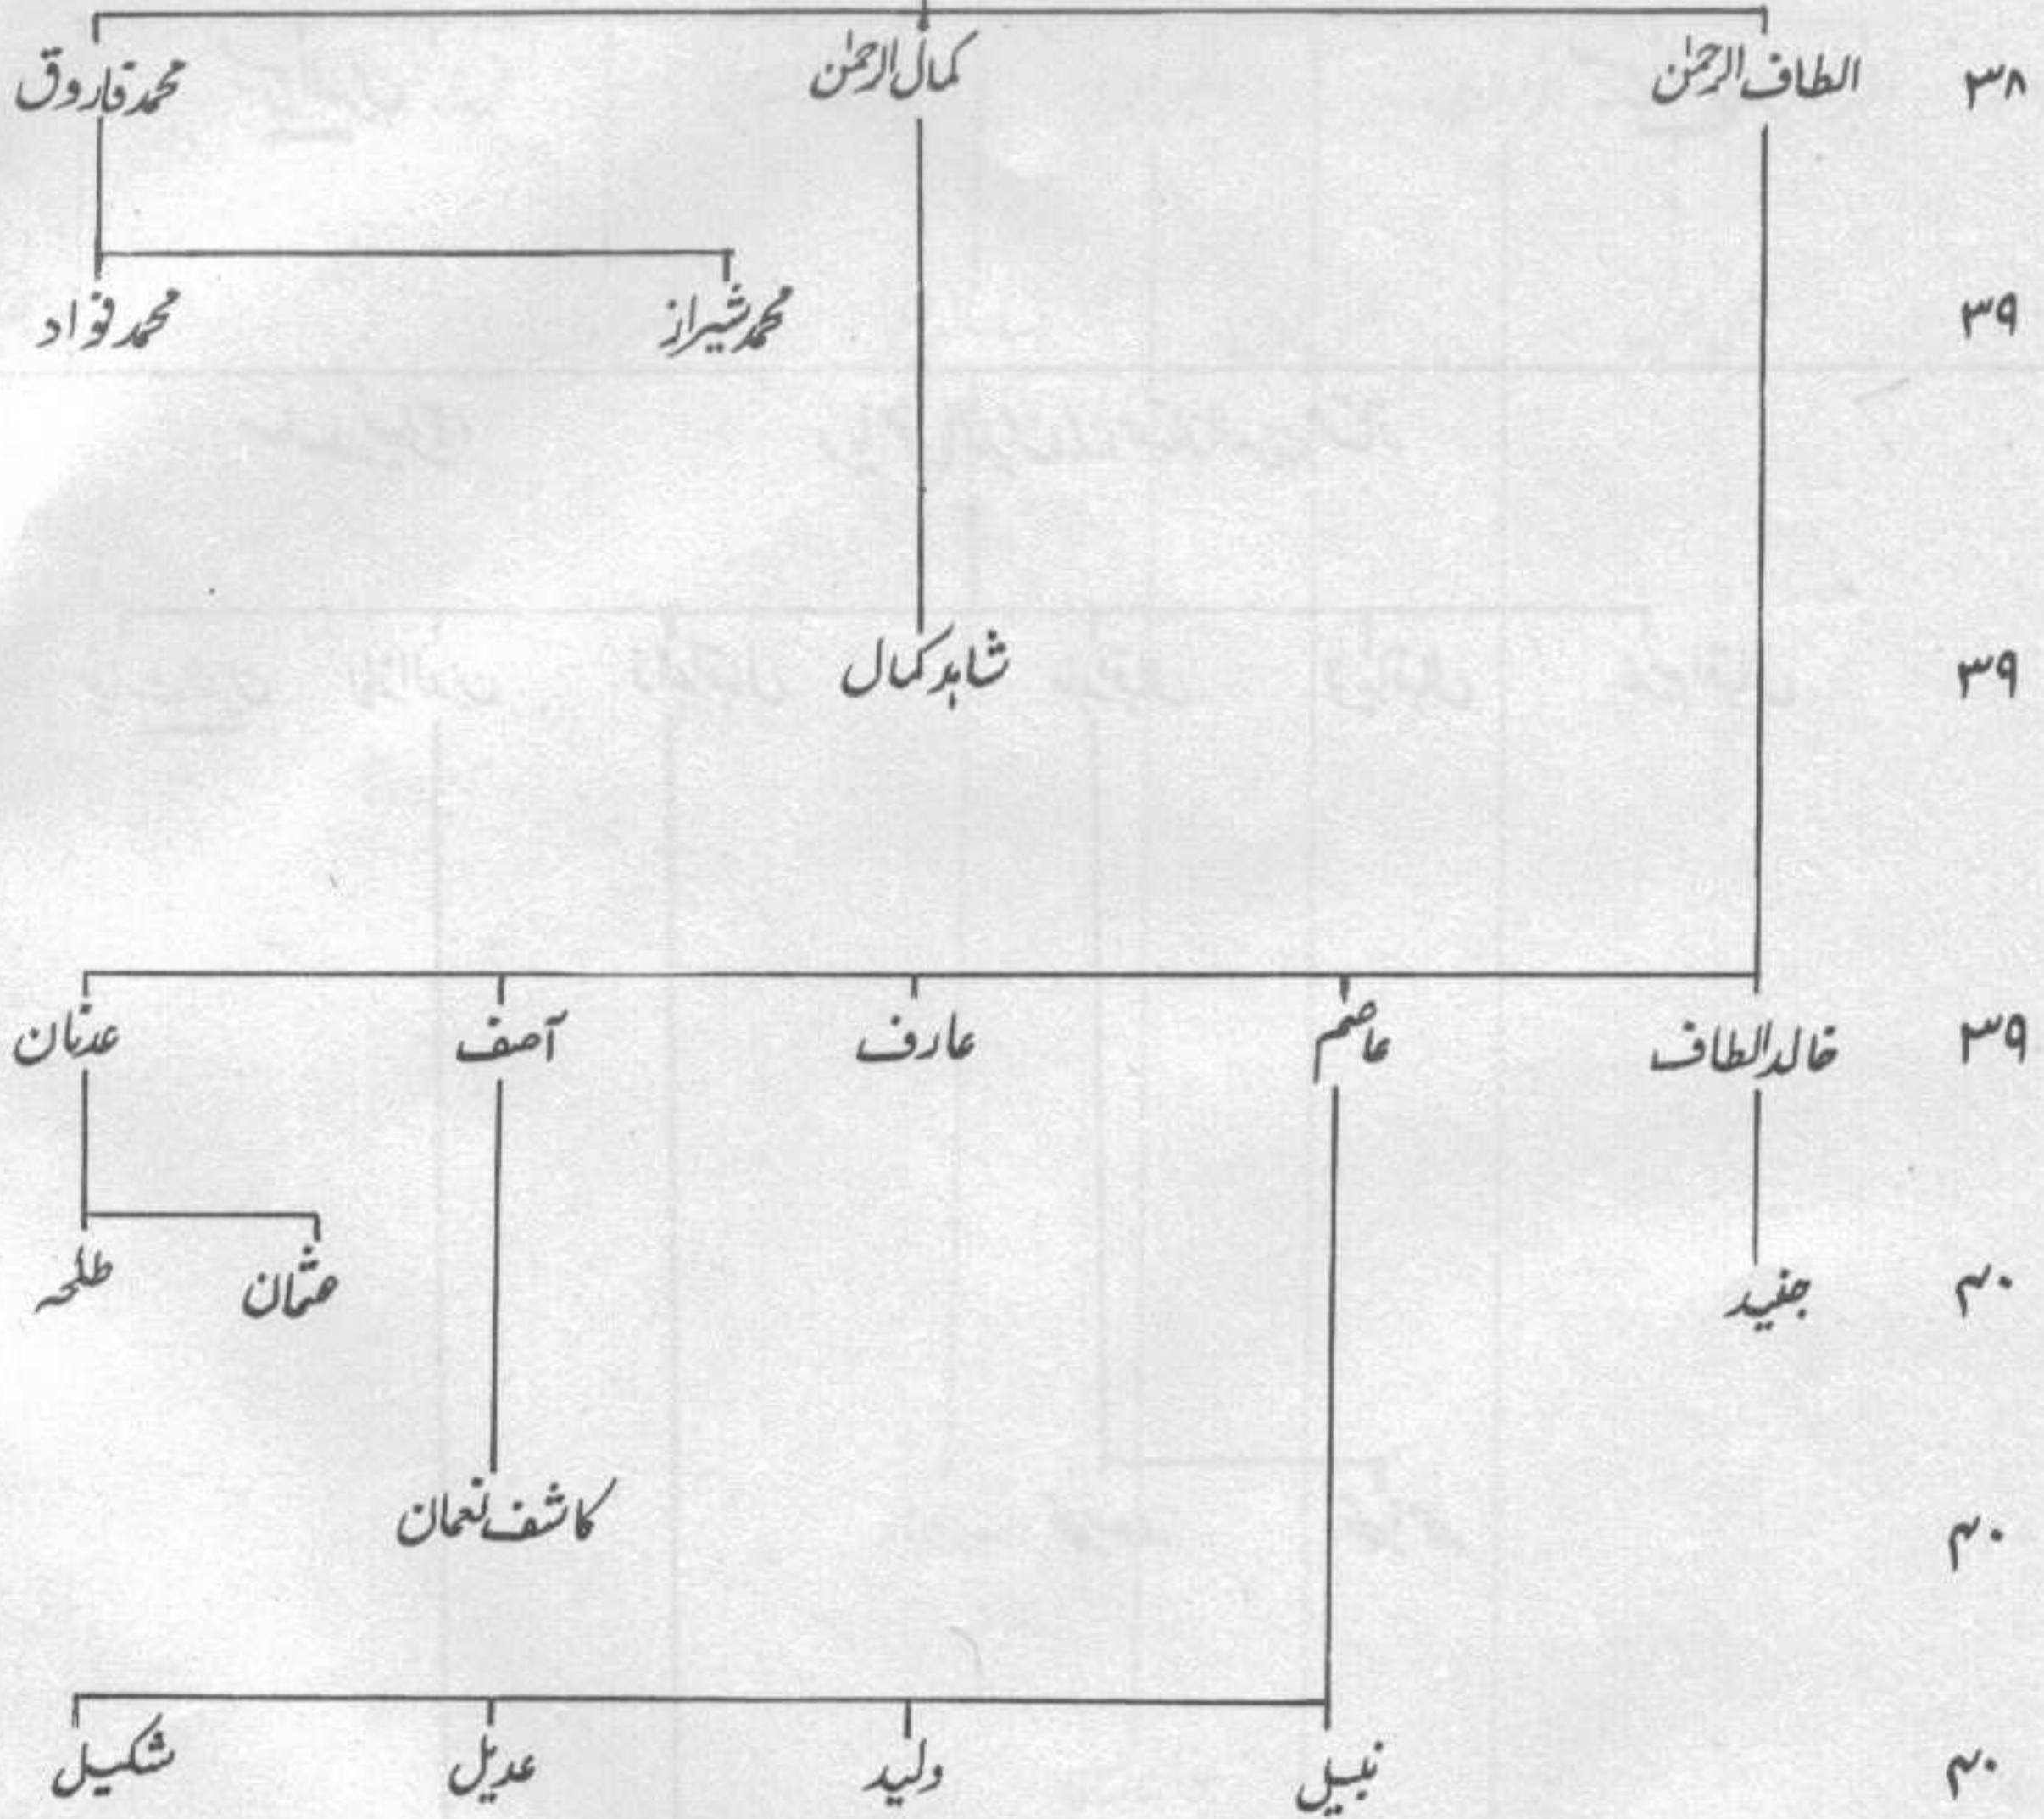 ۳۸ الطاف الرحمٰن کمال الرحمٰن محمد فاروق
۳۹ محمد شیراز محمد فواد
۳۹ شاہد کمال
۳۹ خالد الطاف عاصم عارف آصف عدنان
۴۰ جنید عثمان طلحہ
۴۰ کاشف نعمان
۴۰ نبیل ولید عدیل شکیل